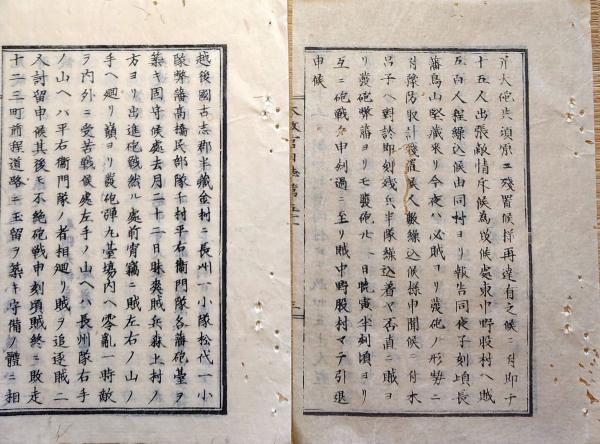 斤大砲共須原ニ残置候様再達有之候ニ付即千
十五人出張敵情斥候為致候處東中野股村ヘ賊
五百人程繰込候由同村ヨリ報告同夜子刻頃長
藩鳥山堅蔵来リ今夜ハ必賊ヨリ発砲ノ形勢ニ
付豫防収計設置候人数繰込候様申聞候ニ付木
呂子ヘ對談即刻残兵半隊繰込着ヤ否直ニ賊ヨ
リ発砲弊藩ヨリモ発砲比一日暁寅半刻頃ヨリ
互ニ砲戦夕申刻過ニ至リ賊中野股村マテ引退
申候
越後國古志郡半蔵金村ニ長州一小隊松代一小
隊弊藩高橋民部隊千村平右衛門隊各藩砲臺ヲ
築キ固守候處去月二十二日昧爽賊兵森上村ノ
方ヨリ出進砲戦然ル處前宵竊ニ賊左右ノ山ノ
手ヘ廻リ嶺ヨリ発砲弾丸臺場内ヘ零亂一時敵
ヲ内外ニ受苦戦候處左手ノ山ヘハ長州隊右手
ノ山ヘハ平右衛門隊ノ者相廻リ賊ヲ追逐賊二
人討留申候其後不絶砲戦申刻頃賊終ニ敗走
十二三町前程道路ニ玉留ヲ築キ守備ノ體ニ相